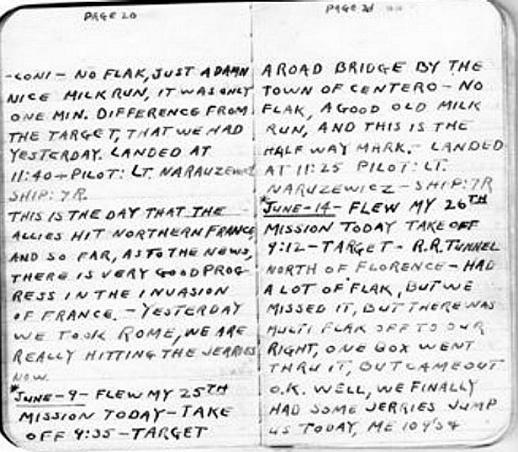 PAGE 20
-CONI- NO FLAK, JUST A DAMN
NICE MILK RUN, IT WAS ONLY
ONE MIN. DIFFERENCE FROM
THE TARGET, THAT WE HAD
YESTERDAY. LANDED AT
11:40 - PILOT: LT. NARAUZEWICZ
SHIP: 7R.
THIS IS THE DAY THAT THE
ALLIES HIT NORTHERN FRANCE,
AND SO FAR, AS TO THE NEWS,
THERE IS VERY GOOD PROG-
RESS IN THE INVASION
OF FRANCE. - YESTERDAY
WE TOOK ROME, WE ARE
REALLY HITTING THE JERRIES
NOW.
*JUNE-9- FLEW MY 25TH
MISSION TODAY - TAKE
OFF 9:35 - TARGET
PAGE
A ROAD BRIDGE BY THE
TOWN OF CENTERO - NO
FLAK, A GOOD OLD MILK
RUN, AND THIS IS THE
HALF WAY MARK. - LANDED
AT 11:25 PILOT: LT.
NARUZEWICZ - SHIP: 7R
*JUNE-14- FLEW MY 26TH
MISSION TODAY TAKE OFF
9:12 - TARGET - R.R. TUNNEL
NORTH OF FLORENCE - HAD
A LOT OF FLAK, BUT WE
MISSED IT, BUT THERE WAS
MULTI FLAK OFF TO OUR
RIGHT, ONE BOX WENT
THRU IT, BUT CAME OUT
O.K. WELL, WE FINALLY
HAD SOME JERRIES JUMP
US TODAY, ME 109'S &